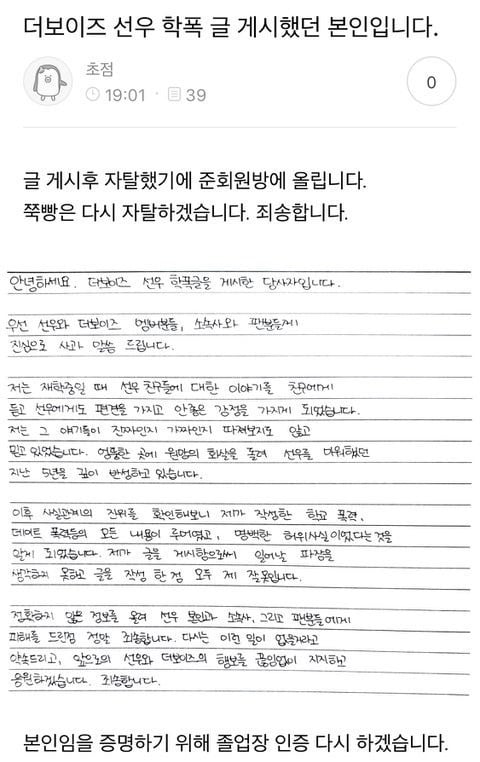 더보이즈 선우 학폭 글 게시했던 본인입니다.
초점
19:01 · 39
0
글 게시후 자탈했기에 준회원방에 올립니다.
쭉빵은 다시 자탈하겠습니다. 죄송합니다.
안녕하세요. 더보이즈 선우 학폭글을 게시한 당사자입니다.
우선 선우와 더보이즈 멤버분들, 소속사와 팬분들께
진심으로 사과 말씀 드립니다.
저는 재학중일 때 선우 친구들에 대한 이야기를 친구에게
듣고 선우에게도 편견을 가지고 안좋은 감정을 가지게 되었습니다.
저는 그 얘기들이 진짜인지 가짜인지 따져보지도 않고
믿고 있었습니다. 엉뚱한 곳에 원망의 화살을 돌려 선우를 미워했던
지난 5년을 깊이 반성하고 있습니다.
이후 사실관계의 진위를 확인해보니 제가 작성한 학교 폭력,
데이트 폭력등의 모든 내용이 루머였고, 명백한 허위사실이었다는것을
알게 되었습니다. 제가 글을 게시함으로써 일어날 파장을
생각하지 못하고 글을 작성 한 점 모두 제 잘못입니다.
정확하지 않은 정보를 올려 선우 본인과 소속사, 그리고 팬분들에게
피해를 드린점 정말 죄송합니다. 다시는 이런 일이 없을거라고
약속드리고, 앞으로의 선우와 더보이즈의 행보를 끊임없이 지지하고
응원하겠습니다. 죄송합니다.
본인임을 증명하기 위해 졸업장 인증 다시 하겠습니다.